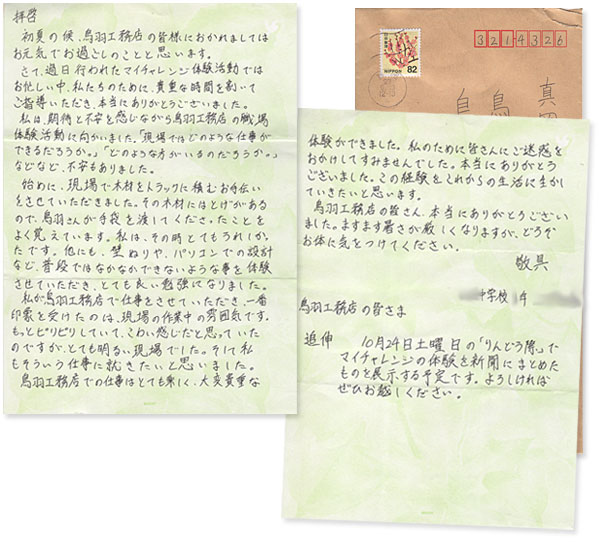 拝啓
初夏の候、鳥羽工務店の皆様におかれましては
お元気でお過ごしのことと思います。
さて、過日行われたマイチャレンジ体験活動では
お忙しい中、私たちのために、貴重な時間を割いて
ご指導いただき、本当にありがとうございました。
私は、期待と不安を感じながら鳥羽工務店の職場
体験活動に向かいました。「現場ではどのような仕事が
できるだろうか。」「どのような方がいるのだろうか。」
などなど、不安もありました。
始めに、現場で木材をトラックに積むお手伝い
をさせていただきました。その木材にはとげがある
ので、鳥羽さんが手袋を渡してくださったことを
よく覚えています。私は、その時とてもうれしかっ
たです。他にも、壁ぬりや、パソコンでの設計
など、普段ではなかなかできないような事を体験
させていただき、とても良い勉強になりました。
私が鳥羽工務店で仕事をさせていただき、一番
印象を受けたのは、現場の作業中の雰囲気です。
もっとピリピリしていて、こわい感じだと思っていた
のですが、とても明るい現場でした。そして私
もそういう仕事に就きたいと思いました。
鳥羽工務店での仕事はとても楽しく、大変貴重な
体験ができました。私のために皆さんにご迷惑を
おかけしてすみませんでした。本当にありがとう
ございました。この経験をこれからの生活に生かし
ていきたいと思います。
鳥羽工務店の皆さん、本当にありがとうござい
ました。ますます暑さが厳しくなりますが、どうぞ
お体に気をつけてください。
敬具
中学校 1年
鳥羽工務店の皆さま
追伸 10月24日土曜日の「りんどう祭」で
マイチャレンジの体験を新聞にまとめた
ものを展示する予定です。よろしければ
ぜひお越しください。
NIPPON 82
3214326
真
鳥